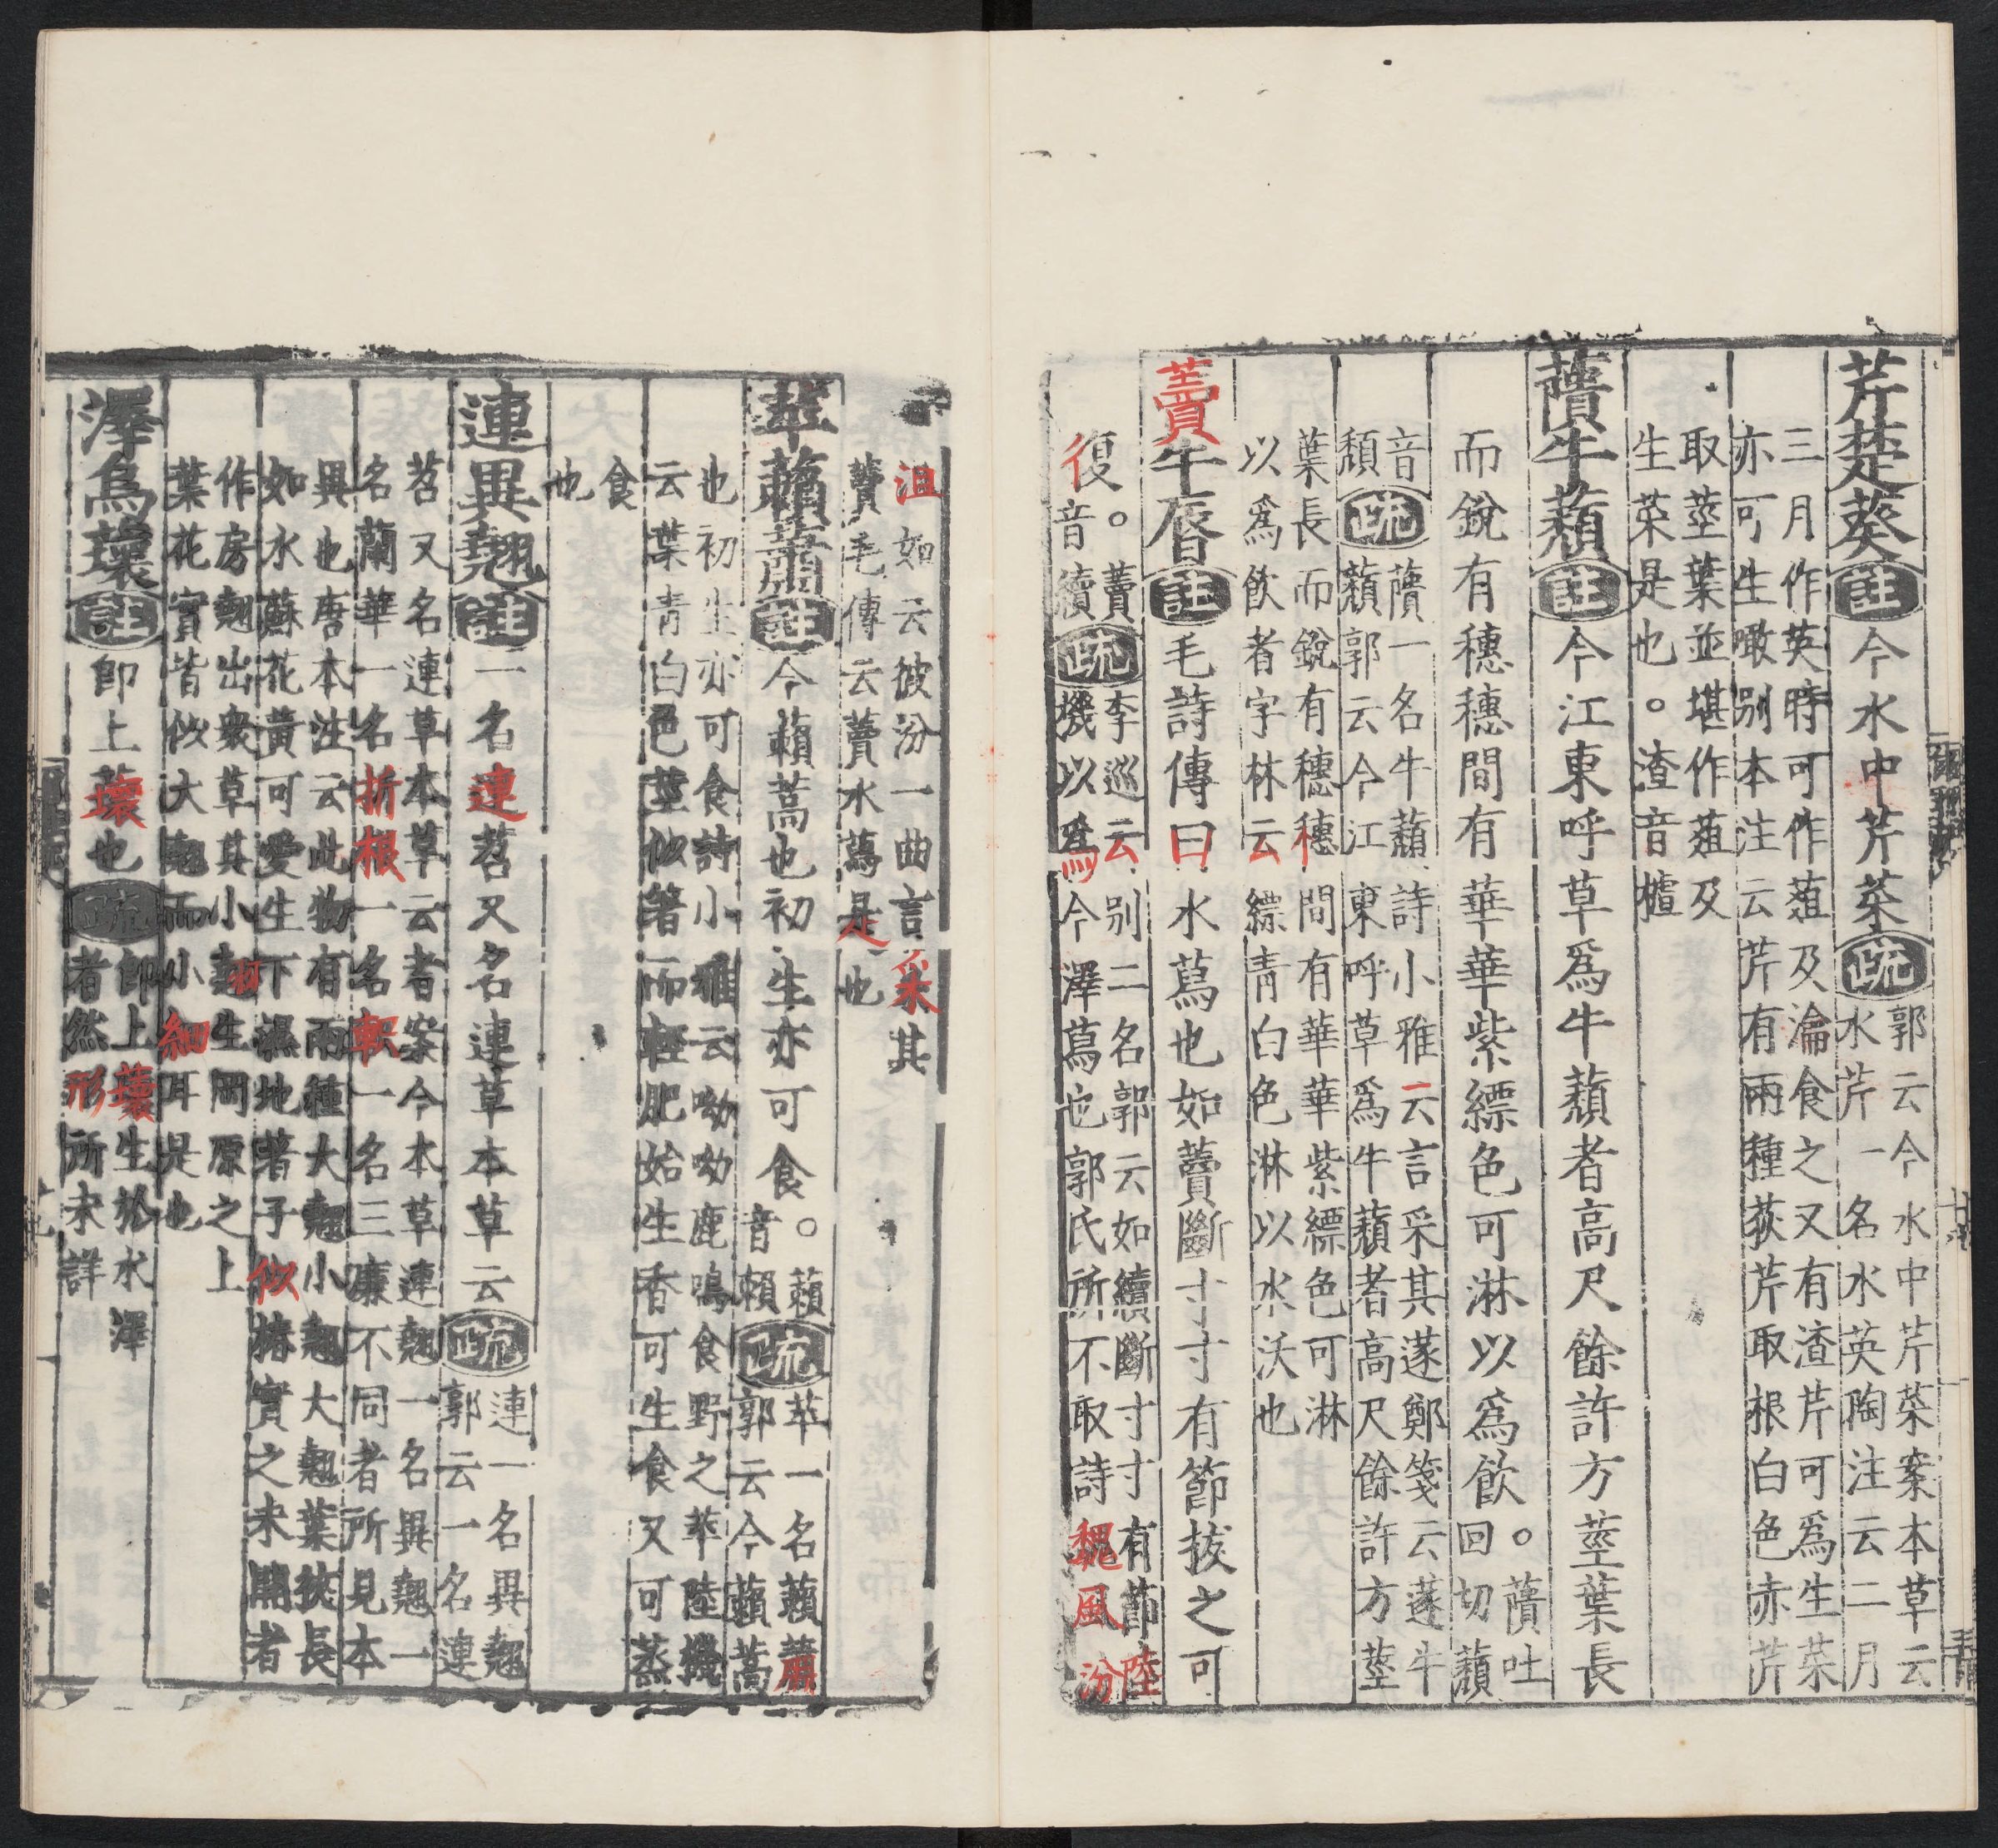 芹楚葵註今水中芹菜疏郭云今水中芹菜案本草云
水芹一名水英陶注云二月
三月作英時可作葅及瀹食之又有渣芹可爲生菜
亦可生噉別本注云芹有兩種荻芹取根白色赤芹
取莖葉並堪作葅及
生菜是也。渣音樝
藬牛蘈註今江東呼草爲牛蘈者高尺餘許方莖葉長
而銳有穗穗間有華華紫縹色可淋以爲飲。藬吐
回切蘈
音
頹疏藬一名牛蘈詩小雅云言采其蓫鄭箋云蓫牛
蘈郭云今江東呼草爲牛蘈者高尺餘許方莖
葉長而銳有穗穗間有華華紫縹色可淋
以爲飲者字林云縹青白色淋以水沃也
藚牛脣註毛詩傳曰水蕮也如藚斷寸寸有節拔之可
復。藚
音續疏李巡云別二名郭云如續斷寸寸有節陸
機以爲今澤蕮也郭氏所不取詩魏風汾
沮如云彼汾一曲言采其
藚毛傳云藚水蕮是也
苹藾蕭註今藾蒿也初生亦可食。藾
音賴疏苹一名藾蕭
郭云今藾蒿
也初生亦可食詩小雅云呦呦鹿鳴食野之苹陸機
云葉青白色莖似箸而輕肥始生香可生食又可蒸
食
也
連異翹註一名連苕又名連草本草云疏連一名異翹
郭云一名連
苕又名連草本草云者案今本草連翹一名異翹一
名蘭華一名折根一名軹一名三廉不同者所見本
異也唐本注云此物有兩種大翹小翹大翹葉狹長
如水蘇花黃可愛生下濕地著子似椿實之未開者
作房翹出衆草其小翹生岡原之上
葉花實皆似大翹而小細耳是也
澤烏蘾註即上蘾也疏即上蘾生於水澤
者然形所未詳